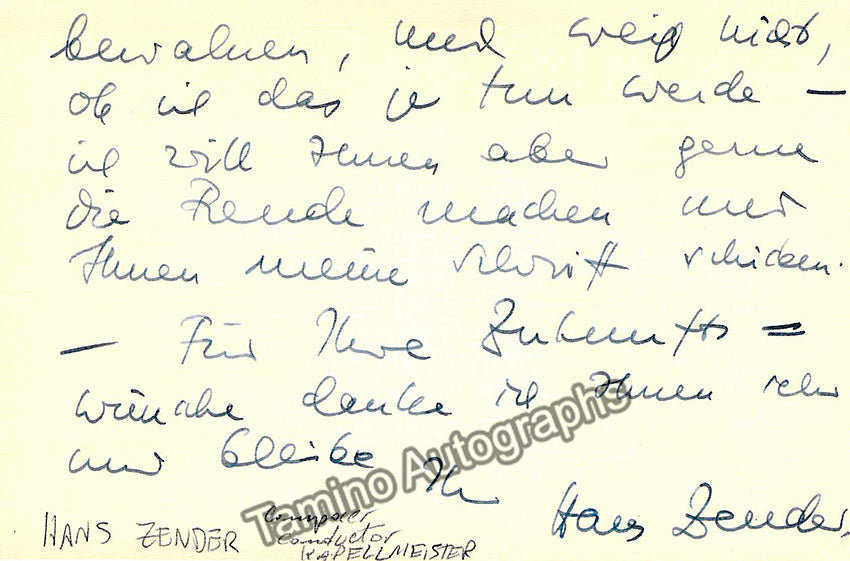 bewahren, und weiß nicht,
ob ich das je tun werde —
ich will Ihnen aber gerne
die Freude machen und
Ihnen meine Schrift schicken.
— Für Ihre Zukunfts =
wünsche danke ich Ihnen sehr
und bleibe
Ihr Hans Zender.
Tamino Autographs
HANS ZENDER Composer
conductor
KAPELLMEISTER